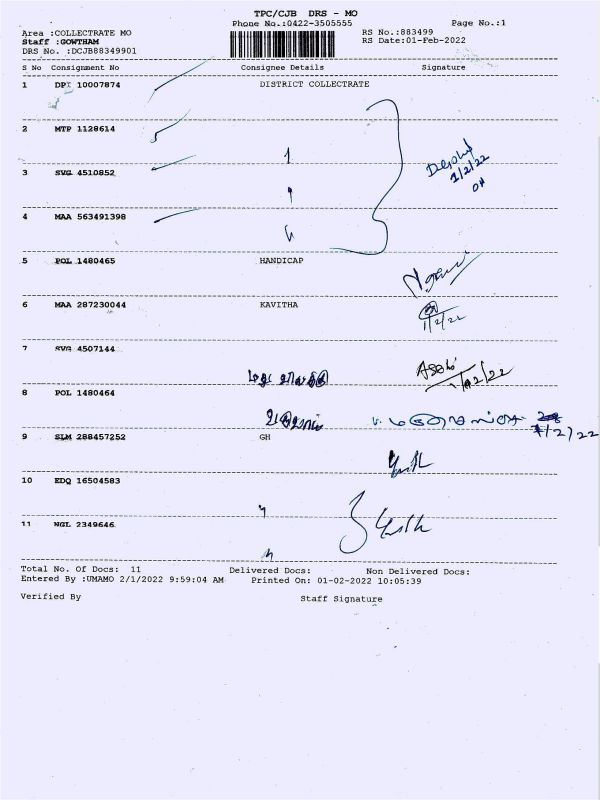 TPC/CJB DRS - MO
Phone No.:0422-3505555 Page No.:1
Area :COLLECTRATE MO RS No.:883499
Staff :GOWTHAM RS Date:01-Feb-2022
DRS No. :DCJB88349901
S No Consignment No Consignee Details Signature
1 DPI 10007874 DISTRICT COLLECTRATE
2 MTP 1128614
3 SVG 4510852
1/2/22
4 MAA 563491398
5 POL 1480465 HANDICAP
6 MAA 287230044 KAVITHA
1/2/22
7 SVG 4507144
8 POL 1480464
1/2/22
9 SLM 288457252 GH
10 EDQ 16504583
11 NGL 2349646
Total No. Of Docs: 11 Delivered Docs: Non Delivered Docs:
Entered By :UMAMO 2/1/2022 9:59:04 AM Printed On: 01-02-2022 10:05:39
Verified By Staff Signature